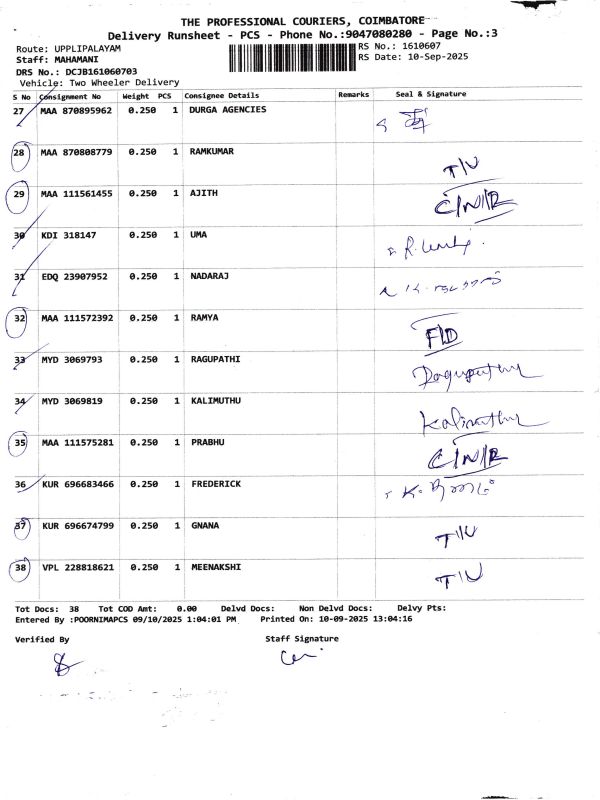 THE PROFESSIONAL COURIERS, COIMBATORE
Delivery Runsheet - PCS - Phone No.:9047080280 - Page No.:3
Route: UPPLIPALAYAM RS No.: 1610607
Staff: MAHAMANI RS Date: 10-Sep-2025
DRS No.: DCJB161060703
Vehicle: Two Wheeler Delivery
S No Consignment No Weight PCS Consignee Details Remarks Seal & Signature
27 MAA 870895962 0.250 1 DURGA AGENCIES
28 MAA 870808779 0.250 1 RAMKUMAR T/U
29 MAA 111561455 0.250 1 AJITH C/N/R
30 KDI 318147 0.250 1 UMA
31 EDQ 23907952 0.250 1 NADARAJ
32 MAA 111572392 0.250 1 RAMYA F/D
33 MYD 3069793 0.250 1 RAGUPATHI Ragupathy
34 MYD 3069819 0.250 1 KALIMUTHU Kalimuthu
35 MAA 111575281 0.250 1 PRABHU C/N/R
36 KUR 696683466 0.250 1 FREDERICK
37 KUR 696674799 0.250 1 GNANA T/U
38 VPL 228818621 0.250 1 MEENAKSHI T/U
Tot Docs: 38 Tot COD Amt: 0.00 Delvd Docs: Non Delvd Docs: Delvy Pts:
Entered By :POORNIMAPCS 09/10/2025 1:04:01 PM Printed On: 10-09-2025 13:04:16
Verified By Staff Signature